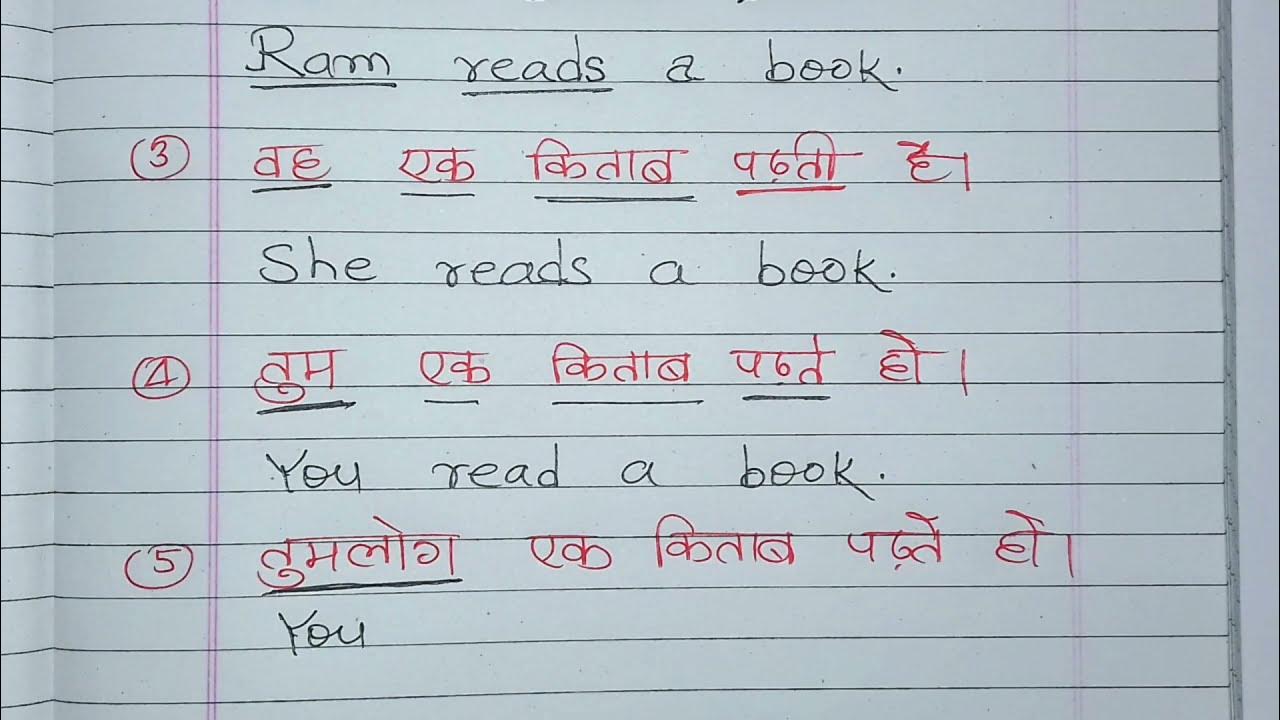 Ram reads a book.
③ वह एक किताब पढ़ती है।
She reads a book.
④ तुम एक किताब पढ़ते हो।
You read a book.
⑤ तुमलोग एक किताब पढ़ते हो।
You